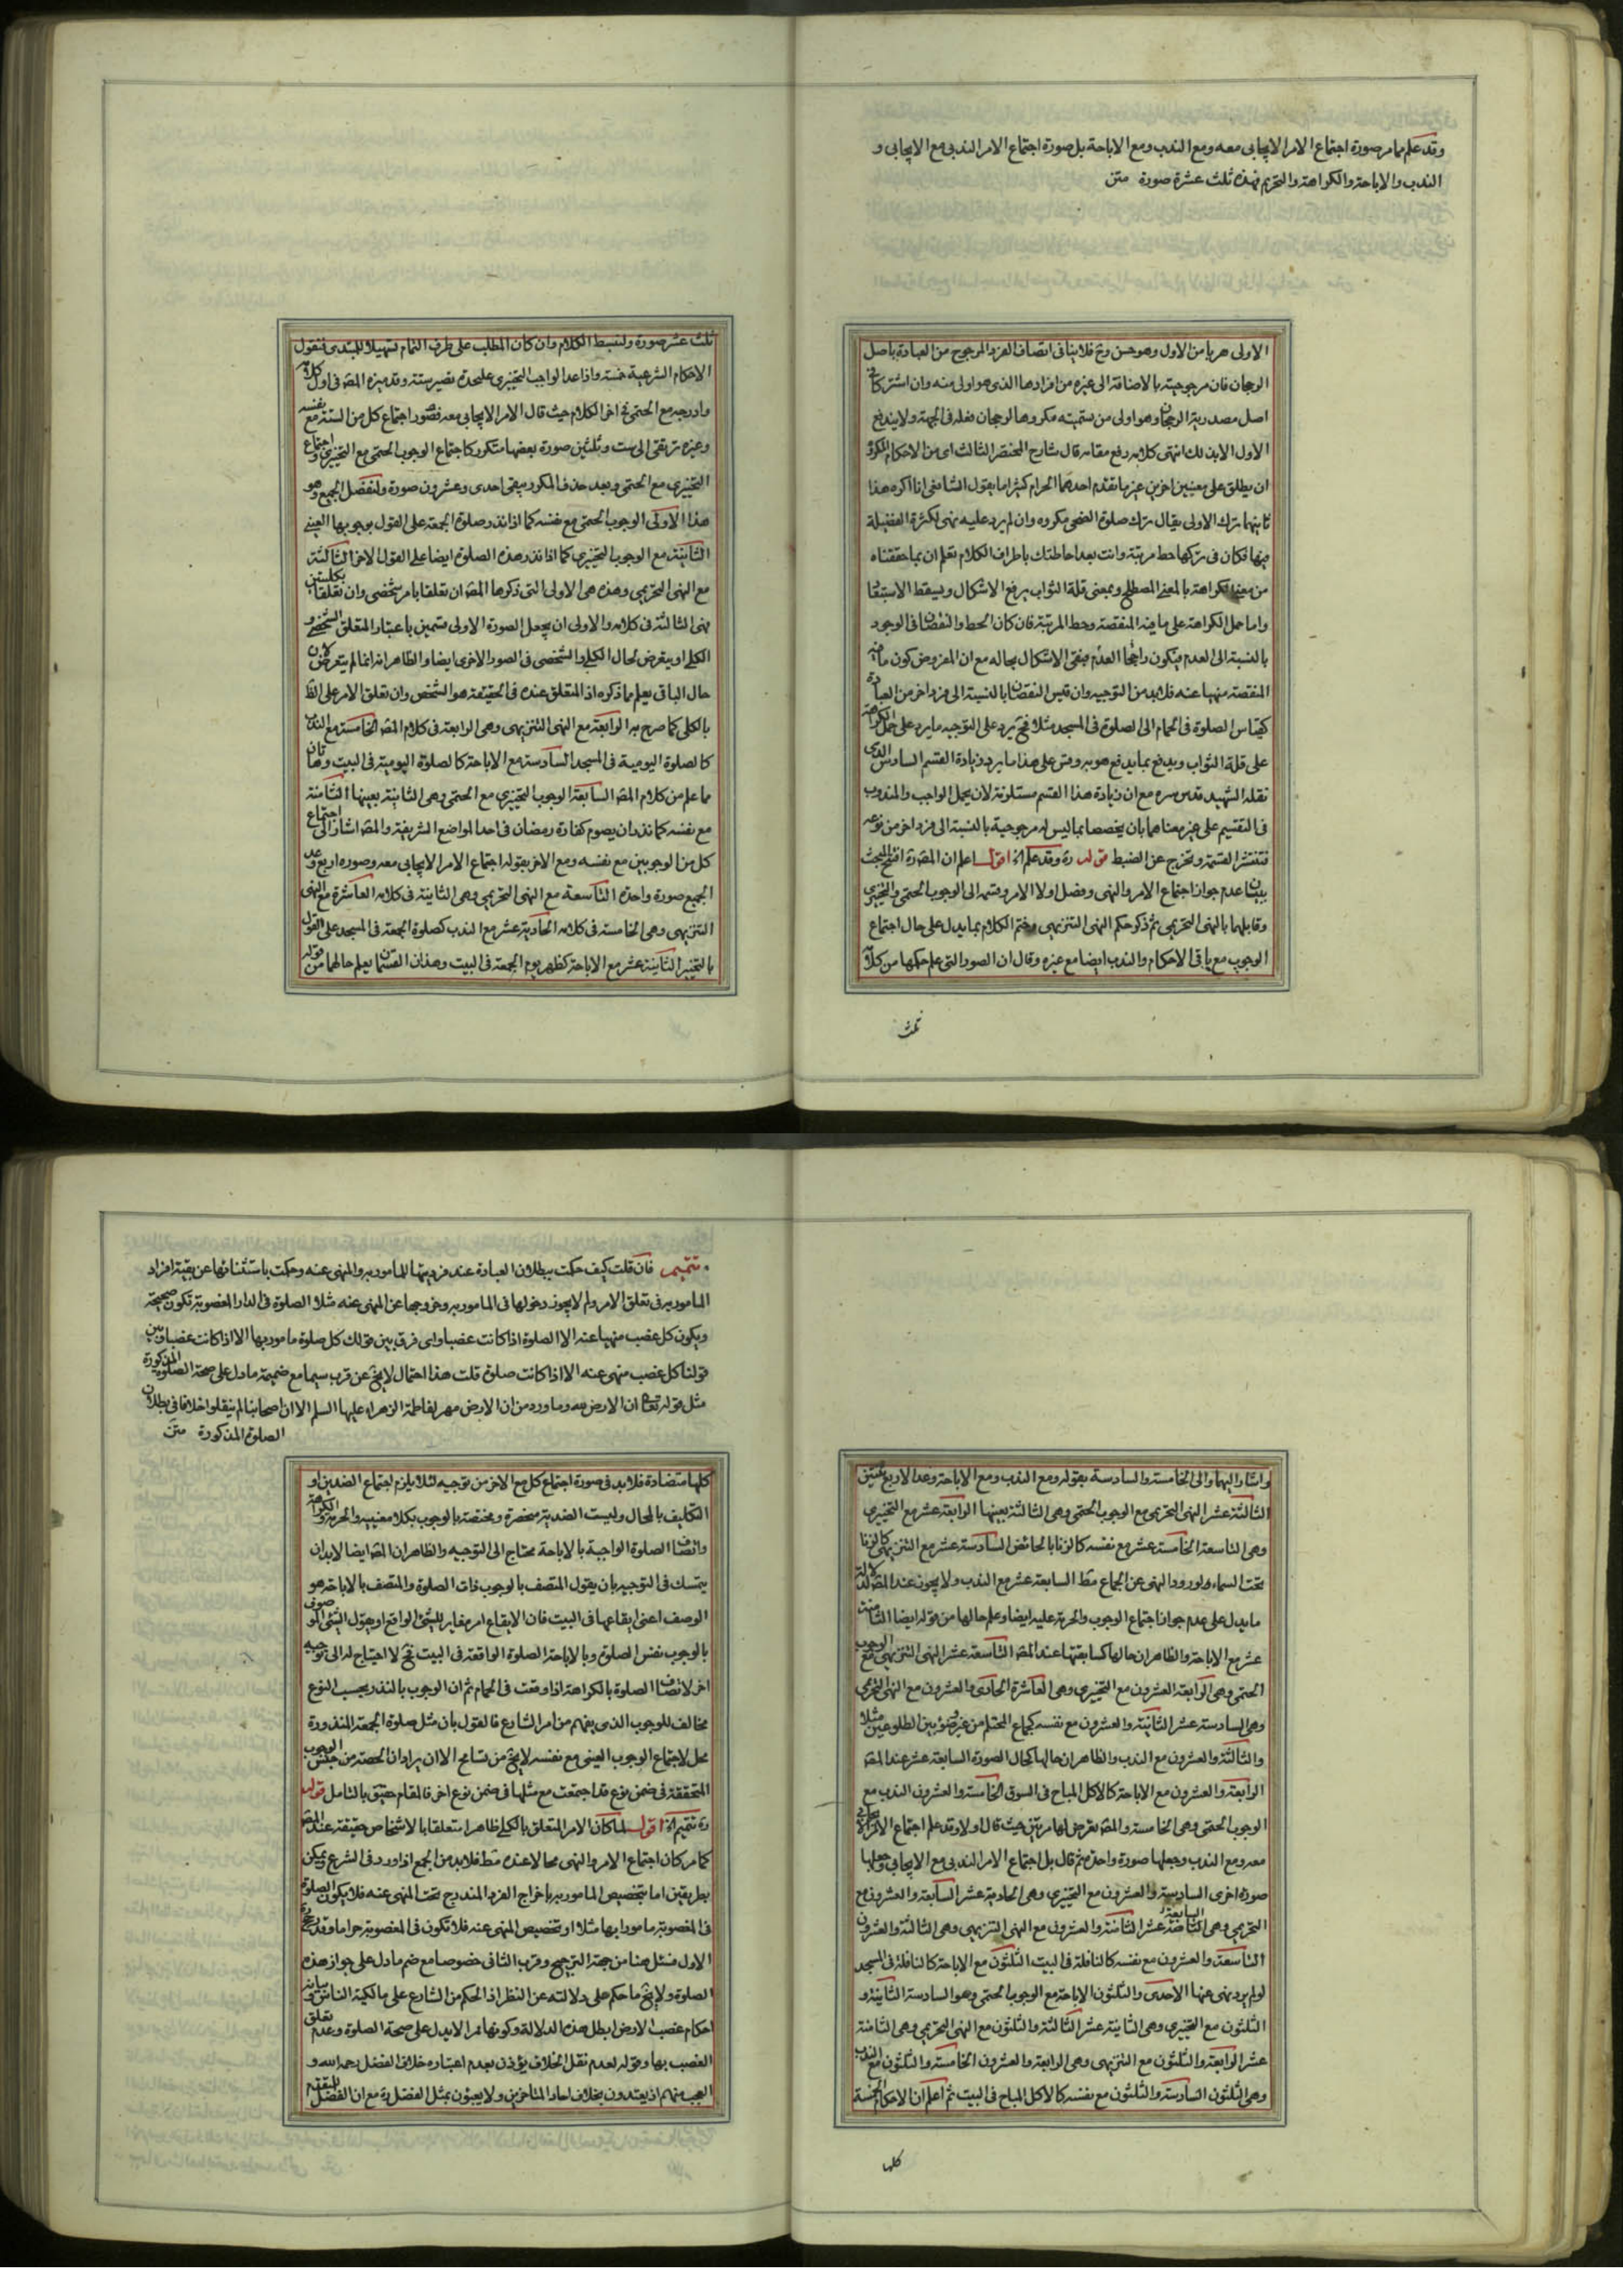 وقد علم مما مر صورة اجتماع الامر الايجابى معه ومع الندب ومع الاباحة بل صورة اجتماع الامر الندبى مع الايجابى و
الندب والاباحة والكراهة والتحريم فهذه ثلث عشرة صورة متن
الاولى هربا من الاول وهو حسن وح فلا ينافى اتصاف الفرد المرجوح من العبادة باصل
الرجحان فان مرجوحيته بالاضافة الى غيره من افرادها الذى هو اولى منه وان اشتركا فى
اصل مصدرية الرجحان وهو اولى من تسميته مكروها لرجحان فعله فى الجهة ولا يندفع
الاول الا بذلك انتهى كلامه رفع مقامه قال شارح المختصر الثالث اى من الاحكام المكروه
ان يطلق على معنيين اخرين غير ما تقدم احدهما الحرام كثيرا ما يقول الشافعى انا اكره هذا
ثانيهما ترك الاولى يقال ترك صلوة الضحى مكروه وان لم يرد عليه نهى لكثرة الفضيلة
فيها فكان فى تركها حط مرتبة وانت بعد احاطتك باطراف الكلام تعلم ان بما حققناه
من معنى الكراهة بالمعنى المصطلح وبمعنى قلة الثواب يرفع الاشكال ويسقط الاستبقا
واما حمل الكراهة على ما فيه المنقصة وحط المرتبة فان كان الحط والنقصان فى الوجود
بالنسبة الى العدم فيكون راجحا العدم فبقى الاشكال بحاله مع ان المفروض كون ما فيه
المنقصة منهيا عنه فلا بد من التوجيه وان قيس النقصان بالنسبة الى فرد اخر من العبادة
كقياس الصلوة فى الحمام الى الصلوة فى المسجد مثلا فح يرد على التوجيه ما يرد على حمل الكراهة
على قلة الثواب ويدفع بما يدفع هو به وقس على هذا ما يرد بزيادة القسم السادس الذى
نقله الشهيد قدس سره مع ان زيادة هذا القسم مستلزمة لان يحمل الواجب والمندوب
فى التقسيم على غير معناهما بان يخصصا بما ليس له مرجوحية بالنسبة الى فرد اخر من نوعه
فتنتشر القسمة وتخرج عن الضبط قوله ره وقد علم اه اقول اعلم ان المص ره افتتح البحث
ببيان عدم جواز اجتماع الامر والنهى وفصل اولا الامر وقسمه الى الوجوب الحتمى والتخييرى
وقابلهما بالنهى التحريمى ثم ذكر حكم النهى التنزيهى وختم الكلام بما يدل على حال اجتماع
الوجوب مع باقى الاحكام والندب ايضا مع غيره وقال ان الصور التى علم حكمها من كلامه
ثلث
ثلث عشر صورة ولنبسط الكلام وان كان المطلب على طرف الثمام تسهيلا للمبتدى فنقول
الاحكام الشرعية خمسة واذا عد الواجب التخييرى عليحدة تصير ستة وقد ميزه المص فى اول كلامه
وادرجه مع الحتمى فى اخر الكلام حيث قال الامر الايجابى معه فصور اجتماع كل من الستة مع نفسه
وغيره ترتقى الى ست وثلثين صورة بعضها متكرر كاجتماع الوجوب الحتمى مع التخييرى واجتماع
التخييرى مع الحتمى وبعد حذف المكرر يبقى احدى وعشرون صورة ولنفصل الجميع وهو
هذا الاولى الوجوب الحتمى مع نفسه كما اذا نذر صلوة الجمعة على القول بوجوبها العينى
الثانية مع الوجوب التخييرى كما اذا نذر هذه الصلوة ايضا على القول الاخر الثالثة
مع النهى التحريمى وهذه هى الاولى التى ذكرها المص ان تعلقا بامر شخصى وان تعلقا بكليتين
فهى الثالثة فى كلامه والاولى ان يجعل الصورة الاولى قسمين باعتبار المتعلق الشخصى و
الكلى او يتعرض لحال الكلى والشخصى فى الصور الاخرى ايضا والظاهر انه انما لم يتعرض لان
حال الباقى يعلم مما ذكره اذ المتعلق عنده فى الحقيقة هو الشخص وان تعلق الامر على الظ
بالكلى كما صرح به الرابعة مع النهى التنزيهى وهى الرابعة فى كلام المص الخامسة مع الندب
كالصلوة اليومية فى المسجد السادسة مع الاباحة كالصلوة اليومية فى البيت وهاتان
مما علم من كلام المص السابعة الوجوب التخييرى مع الحتمى وهى الثانية بعينها الثامنة
مع نفسه كما نذر ان يصوم كفارة رمضان فى احد المواضع الشريفة والمص اشار الى اجتماع
كل من الوجوبين مع نفسه ومع الاخر بقوله اجتماع الامر الايجابى معه وصوره اربع وعد
الجميع صورة واحدة التاسعة مع النهى التحريمى وهى الثانية فى كلامه العاشرة مع النهى
التنزيهى وهى الخامسة فى كلامه الحادية عشر مع الندب كصلوة الجمعة فى المسجد على القول
بالتخيير الثانية عشر مع الاباحة كظهر يوم الجمعة فى البيت وهذان القسمان يعلم حالهما من قوله
واشار اليهما والى الخامسة والسادسة بقوله ومع الندب ومع الاباحة وعد الاربع ثنتين
الثالثة عشر النهى التحريمى مع الوجوب الحتمى وهى الثالثة بعينها الرابعة عشر مع التخييرى
وهى التاسعة الخامسة عشر مع نفسه كالزنا بالحائض السادسة عشر مع التنزيهى كالزنا
تحت السماء ولورود النهى عن الجماع فقط السابعة عشر مع الندب ولا يجوز عند المص لدلالة
ما يدل على عدم جواز اجتماع الوجوب والحرمة عليه ايضا وعلم حالها من قوله ايضا الثامنة
عشر مع الاباحة والظاهر ان حالها كسابقتها عند المص التاسعة عشر النهى التنزيهى مع الوجوب
الحتمى وهى الرابعة العشرون مع التخييرى وهى العاشرة الحادى والعشرون مع النهى التحريمى
وهى السادسة عشر الثانية والعشرون مع نفسه كجماع المحتلم من غير وضوء بين الطلوعين مثلا
والثالثة والعشرون مع الندب والظاهر ان حالها كحال الصورة السابعة عشر عند المص
الرابعة والعشرون مع الاباحة كالاكل المباح فى السوق الخامسة والعشرون الندب مع
الوجوب الحتمى وهى الخامسة والمص تعرض لها مرتين حيث قال اولا وقد علم اجتماع الامر الايجابى
معه ومع الندب وجعلها صورة واحدة ثم قال بل اجتماع الامر الندبى مع الايجابى وجعلها
صورة اخرى السادسة والعشرون مع التخييرى وهى الحادية عشر السابعة والعشرون مع
التحريمى وهى السابعة عشر الثامنة والعشرون مع النهى التنزيهى وهى الثالثة والعشرون
التاسعة والعشرون مع نفسه كالنافلة فى البيت الثلثون مع الاباحة كالنافلة فى المسجد
لو لم يرد نهى عنها الاحدى والثلثون الاباحة مع الوجوب الحتمى وهو السادسة الثانية و
الثلثون مع التخييرى وهى الثانية عشر الثالثة والثلثون مع النهى التحريمى وهى الثامنة
عشر الرابعة والثلثون مع التنزيهى وهى الرابعة والعشرون الخامسة والثلثون مع الندب
وهى الثلثون السادسة والثلثون مع نفسه كالاكل المباح فى البيت ثم اعلم ان الاحكام الخمسة
كلها
تتميم فان قلت كيف حكمت ببطلان العبادة عند فرديتها للمامور به والمنهى عنه وحكمت باستثنائها عن بقية افراد
المامور به فى تعلق الامر ولم لا يجوز دخولها فى المامور به وخروجها عن المنهى عنه مثلا الصلوة فى الدار المغصوبة تكون صحيحة
ويكون كل غصب منهيا عنه الا الصلوة اذا كانت غصبا واى فرق بين قولك كل صلوة مامور بها الا اذا كانت غصبا وبين
قولنا كل غصب منهى عنه الا اذا كانت صلوة قلت هذا احتمال لا يخ عن قرب سيما مع ضميمة ما دل على صحة الصلوة المذكورة
مثل قوله تعا ان الارض لله وما ورد من ان الارض مهر لفاطمة الزهراء عليها السلم الا ان اصحابنا لم ينقلوا خلافا فى بطلان
الصلوة المذكورة متن
كلها متضادة فلا بد فى صورة اجتماع كل مع الاخر من توجيه لئلا يلزم اجتماع الضدين او
التكليف بالمحال وليست الضدية منحصرة ومختصة بالوجوب بكلا معنييه والحرمة والكراهة
واتصاف الصلوة الواجبة بالاباحة محتاج الى التوجيه والظاهر ان المص ايضا لا بد ان
يتمسك فى التوجيه بان يقول المتصف بالوجوب ذات الصلوة والمتصف بالاباحة هو
الوصف اعنى ايقاعها فى البيت فان الايقاع امر مغاير للشئ الواقع او يقول الشئ الموصوف
بالوجوب نفس الصلوة وبالاباحة الصلوة الواقعة فى البيت فح لا احتياج له الى توجيه
اخر لاتصاف الصلوة بالكراهة اذا وقعت فى الحمام ثم ان الوجوب بالنذر بحسب النوع
مخالف للوجوب الذى يفهم من امر الشارع فالقول بان مثل صلوة الجمعة المنذورة
محل لاجتماع الوجوب العينى مع نفسه لا يخ من تسامح الا ان يراد ان الحصة من جنس الوجوب
المتحققة فى ضمن نوع قد اجتمعت مع مثلها فى ضمن نوع اخر فالمقام حقيق بالتامل قوله
ره تتميم اه اقول لما كان الامر المتعلق بالكلى ظاهرا متعلقا بالاشخاص حقيقة عند المص
كما مر كان اجتماع الامر والنهى محالا عنده فقط فلا بد من الجمع اذا ورد فى الشرع ويمكن
بطريقين اما بتخصيص المامور به باخراج الفرد المندرج تحت المنهى عنه فلا يكون الصلوة
فى المغصوبة مامورا بها مثلا او تخصيص المنهى عنه فلا تكون فى المغصوبة حراما وقد رجح
الاول فسئل هنا من جهة الترجيح وقرب الثانى خصوصا مع ضم ما دل على جواز هذه
الصلوة ولا يخ ما حكم على دلالته عن النظر اذ الحكم من الشارع على مالكية الناس وبيانه
احكام غصب الارض ابطل هذه الدلالة وكونها مهرا لا يدل على صحة الصلوة وعدم تعلق
الغصب بها وقوله لعدم نقل الخلاف يؤذن بعدم اعتباره خلاف الفضل رحمه الله و
العجب منهم اذ يعتدون بخلاف احاد المتاخرين ولا يعبؤن بمثل الفضل ره مع ان الفضل